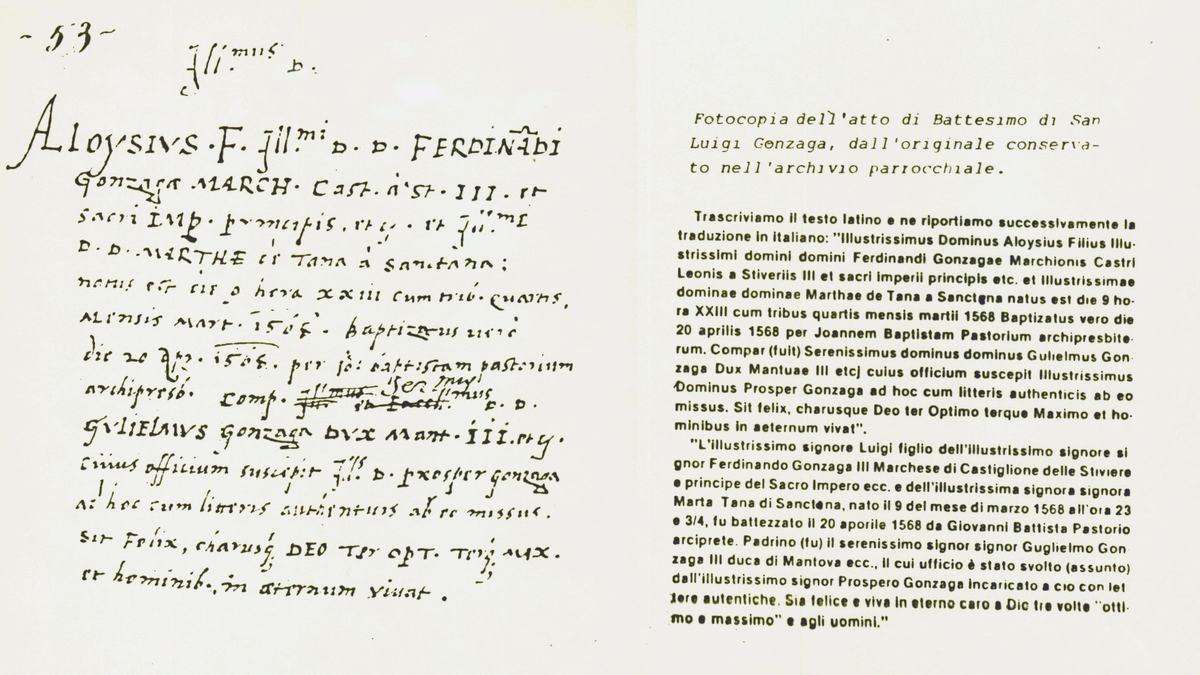 - 53 -
Ill.mus D.
ALOYSIVS · F. Ill.mi D. D. FERDINĀDI
Gonzagæ MARCH. Cast. à st. III. et
sacri IMP. principis, et et Ill.mæ
D. D. MARTHE Tana à Sanctàna;
natus est die 9 hora xxiii cum trib. quartis,
Mensis Mart. 1568. baptizatus verò
die 20 Apr. 1568. per baptistam pastorium
archipresb. Comp. Ser.mus D. D.
GVLIELMVS Gonzaga DVX Mant. III. et
cuius officium suscepit Ill. D. prosper gonzaga
ad hoc cum litteris authenticis ab eo missus.
Sit Felix, charusq; DEO Ter OPT. Terq; MAX.
et hominib. in æternum vivat.
Fotocopia dell'atto di Battesimo di San
Luigi Gonzaga, dall'originale conserva-
to nell'archivio parrocchiale.
Trascriviamo il testo latino e ne riportiamo successivamente la
traduzione in italiano: "Illustrissimus Dominus Aloysius Filius Illu-
strissimi domini domini Ferdinandi Gonzagae Marchionis Castri
Leonis a Stiveriis III et sacri imperii principis etc. et Illustrissimae
dominae dominae Marthae de Tana a Sanctena natus est die 9 ho-
ra XXIII cum tribus quartis mensis martii 1568 Baptizatus vero die
20 aprilis 1568 per Joannem Baptistam Pastorium archipresbite-
rum. Compar (fuit) Serenissimus dominus dominus Gulielmus Gon
zaga Dux Mantuae III etc) cuius officium suscepit Illustrissimus
Dominus Prosper Gonzaga ad hoc cum litteris authenticis ab eo
missus. Sit felix, charusque Deo ter Optimo terque Maximo et ho-
minibus in aeternum vivat".
"L'illustrissimo signore Luigi figlio dell'illustrissimo signore si
gnor Ferdinando Gonzaga III Marchese di Castiglione delle Stiviere
e principe del Sacro Impero ecc. e dell'illustrissima signora signora
Marta Tana di Sanctena, nato il 9 del mese di marzo 1568 all'ora 23
e 3/4, fu battezzato il 20 aporile 1568 da Giovanni Battista Pastorio
arciprete. Padrino (fu) il serenissimo signor signor Guglielmo Gon
zaga III duca di Mantova ecc., il cui ufficio è stato svolto (assunto)
dall'illustrissimo signor Prospero Gonzaga incaricato a cio con let
tere autentiche. Sia felice e viva in eterno caro a Dio tre volte "otti-
mo e massimo" e agli uomini."